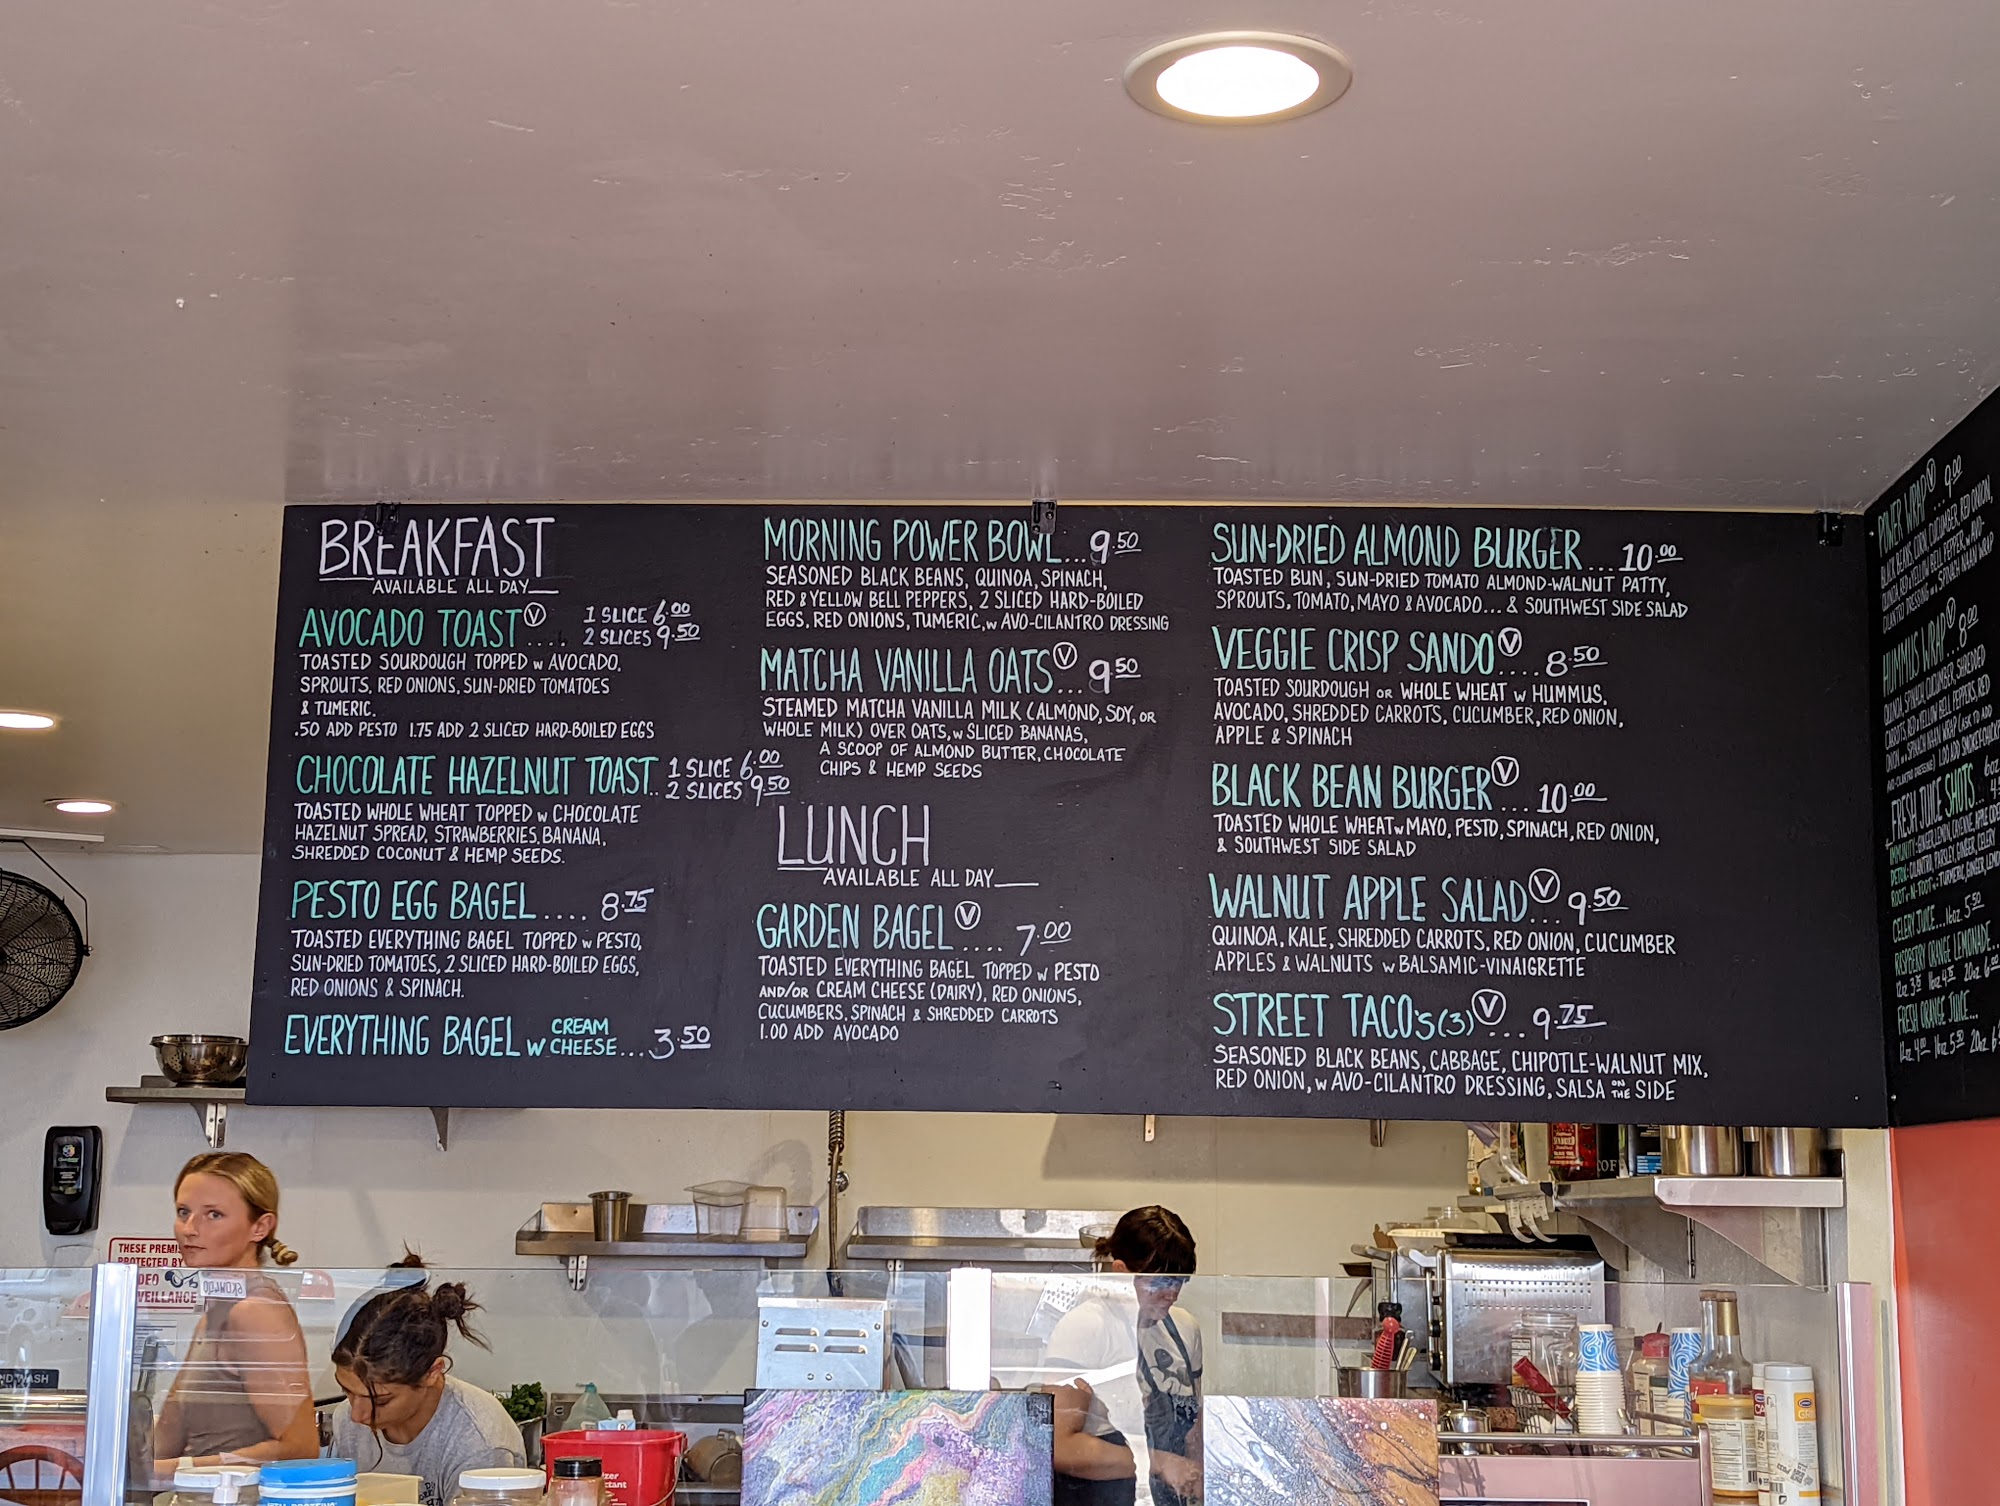 BREAKFAST
AVAILABLE ALL DAY
AVOCADO TOAST Ⓥ .... 1 SLICE 6.00
2 SLICES 9.50
TOASTED SOURDOUGH TOPPED w AVOCADO,
SPROUTS, RED ONIONS, SUN-DRIED TOMATOES
& TUMERIC.
.50 ADD PESTO 1.75 ADD 2 SLICED HARD-BOILED EGGS
CHOCOLATE HAZELNUT TOAST.. 1 SLICE 6.00
2 SLICES 9.50
TOASTED WHOLE WHEAT TOPPED w CHOCOLATE
HAZELNUT SPREAD, STRAWBERRIES, BANANA,
SHREDDED COCONUT & HEMP SEEDS.
PESTO EGG BAGEL .... 8.75
TOASTED EVERYTHING BAGEL TOPPED w PESTO,
SUN-DRIED TOMATOES, 2 SLICED HARD-BOILED EGGS,
RED ONIONS & SPINACH.
EVERYTHING BAGEL w CREAM CHEESE... 3.50
MORNING POWER BOWL... 9.50
SEASONED BLACK BEANS, QUINOA, SPINACH,
RED & YELLOW BELL PEPPERS, 2 SLICED HARD-BOILED
EGGS, RED ONIONS, TUMERIC, w AVO-CILANTRO DRESSING
MATCHA VANILLA OATS Ⓥ ... 9.50
STEAMED MATCHA VANILLA MILK (ALMOND, SOY, OR
WHOLE MILK) OVER OATS, w SLICED BANANAS,
A SCOOP OF ALMOND BUTTER, CHOCOLATE
CHIPS & HEMP SEEDS
LUNCH
AVAILABLE ALL DAY
GARDEN BAGEL Ⓥ .... 7.00
TOASTED EVERYTHING BAGEL TOPPED w PESTO
AND/OR CREAM CHEESE (DAIRY), RED ONIONS,
CUCUMBERS, SPINACH & SHREDDED CARROTS
1.00 ADD AVOCADO
SUN-DRIED ALMOND BURGER ... 10.00
TOASTED BUN, SUN-DRIED TOMATO ALMOND-WALNUT PATTY,
SPROUTS, TOMATO, MAYO & AVOCADO... & SOUTHWEST SIDE SALAD
VEGGIE CRISP SANDO Ⓥ .... 8.50
TOASTED SOURDOUGH OR WHOLE WHEAT w HUMMUS,
AVOCADO, SHREDDED CARROTS, CUCUMBER, RED ONION,
APPLE & SPINACH
BLACK BEAN BURGER Ⓥ ... 10.00
TOASTED WHOLE WHEAT w MAYO, PESTO, SPINACH, RED ONION,
& SOUTHWEST SIDE SALAD
WALNUT APPLE SALAD Ⓥ ... 9.50
QUINOA, KALE, SHREDDED CARROTS, RED ONION, CUCUMBER
APPLES & WALNUTS w BALSAMIC-VINAIGRETTE
STREET TACO'S (3) Ⓥ ... 9.75
SEASONED BLACK BEANS, CABBAGE, CHIPOTLE-WALNUT MIX,
RED ONION, w AVO-CILANTRO DRESSING, SALSA ON THE SIDE
POWER WRAP Ⓥ ... 9.00
BLACK BEANS, CORN, CUCUMBER, RED ONION,
QUINOA, RED & YELLOW BELL PEPPER, w AVO-
CILANTRO DRESSING SPINACH NAAN WRAP
HUMMUS WRAP Ⓥ ... 8.00
QUINOA, SPINACH, CUCUMBER, SHREDDED
CARROTS, RED & YELLOW BELL PEPPERS, RED
ONION SPINACH NAAN WRAP (ASK TO ADD
AVO-CILANTRO DRESSING) 1.00 ADD
FRESH JUICE SHOTS... 6oz
IMMUNITY: GINGER, LEMON, CAYENNE, APPLE CIDER
DETOX: CILANTRO, PARSLEY, GINGER, CELERY
ROOT-N-ROOT: TURMERIC, GINGER, LEMON
CELERY JUICE... 16oz 5.50
RASPBERRY ORANGE LEMONADE...
12oz 3.75 16oz 4.75 20oz 6.00
FRESH ORANGE JUICE...
12oz 4.00 16oz 5.50 20oz
THESE PREMIS
PROTECTED BY
DEO
VEILLANCE
ND WASH